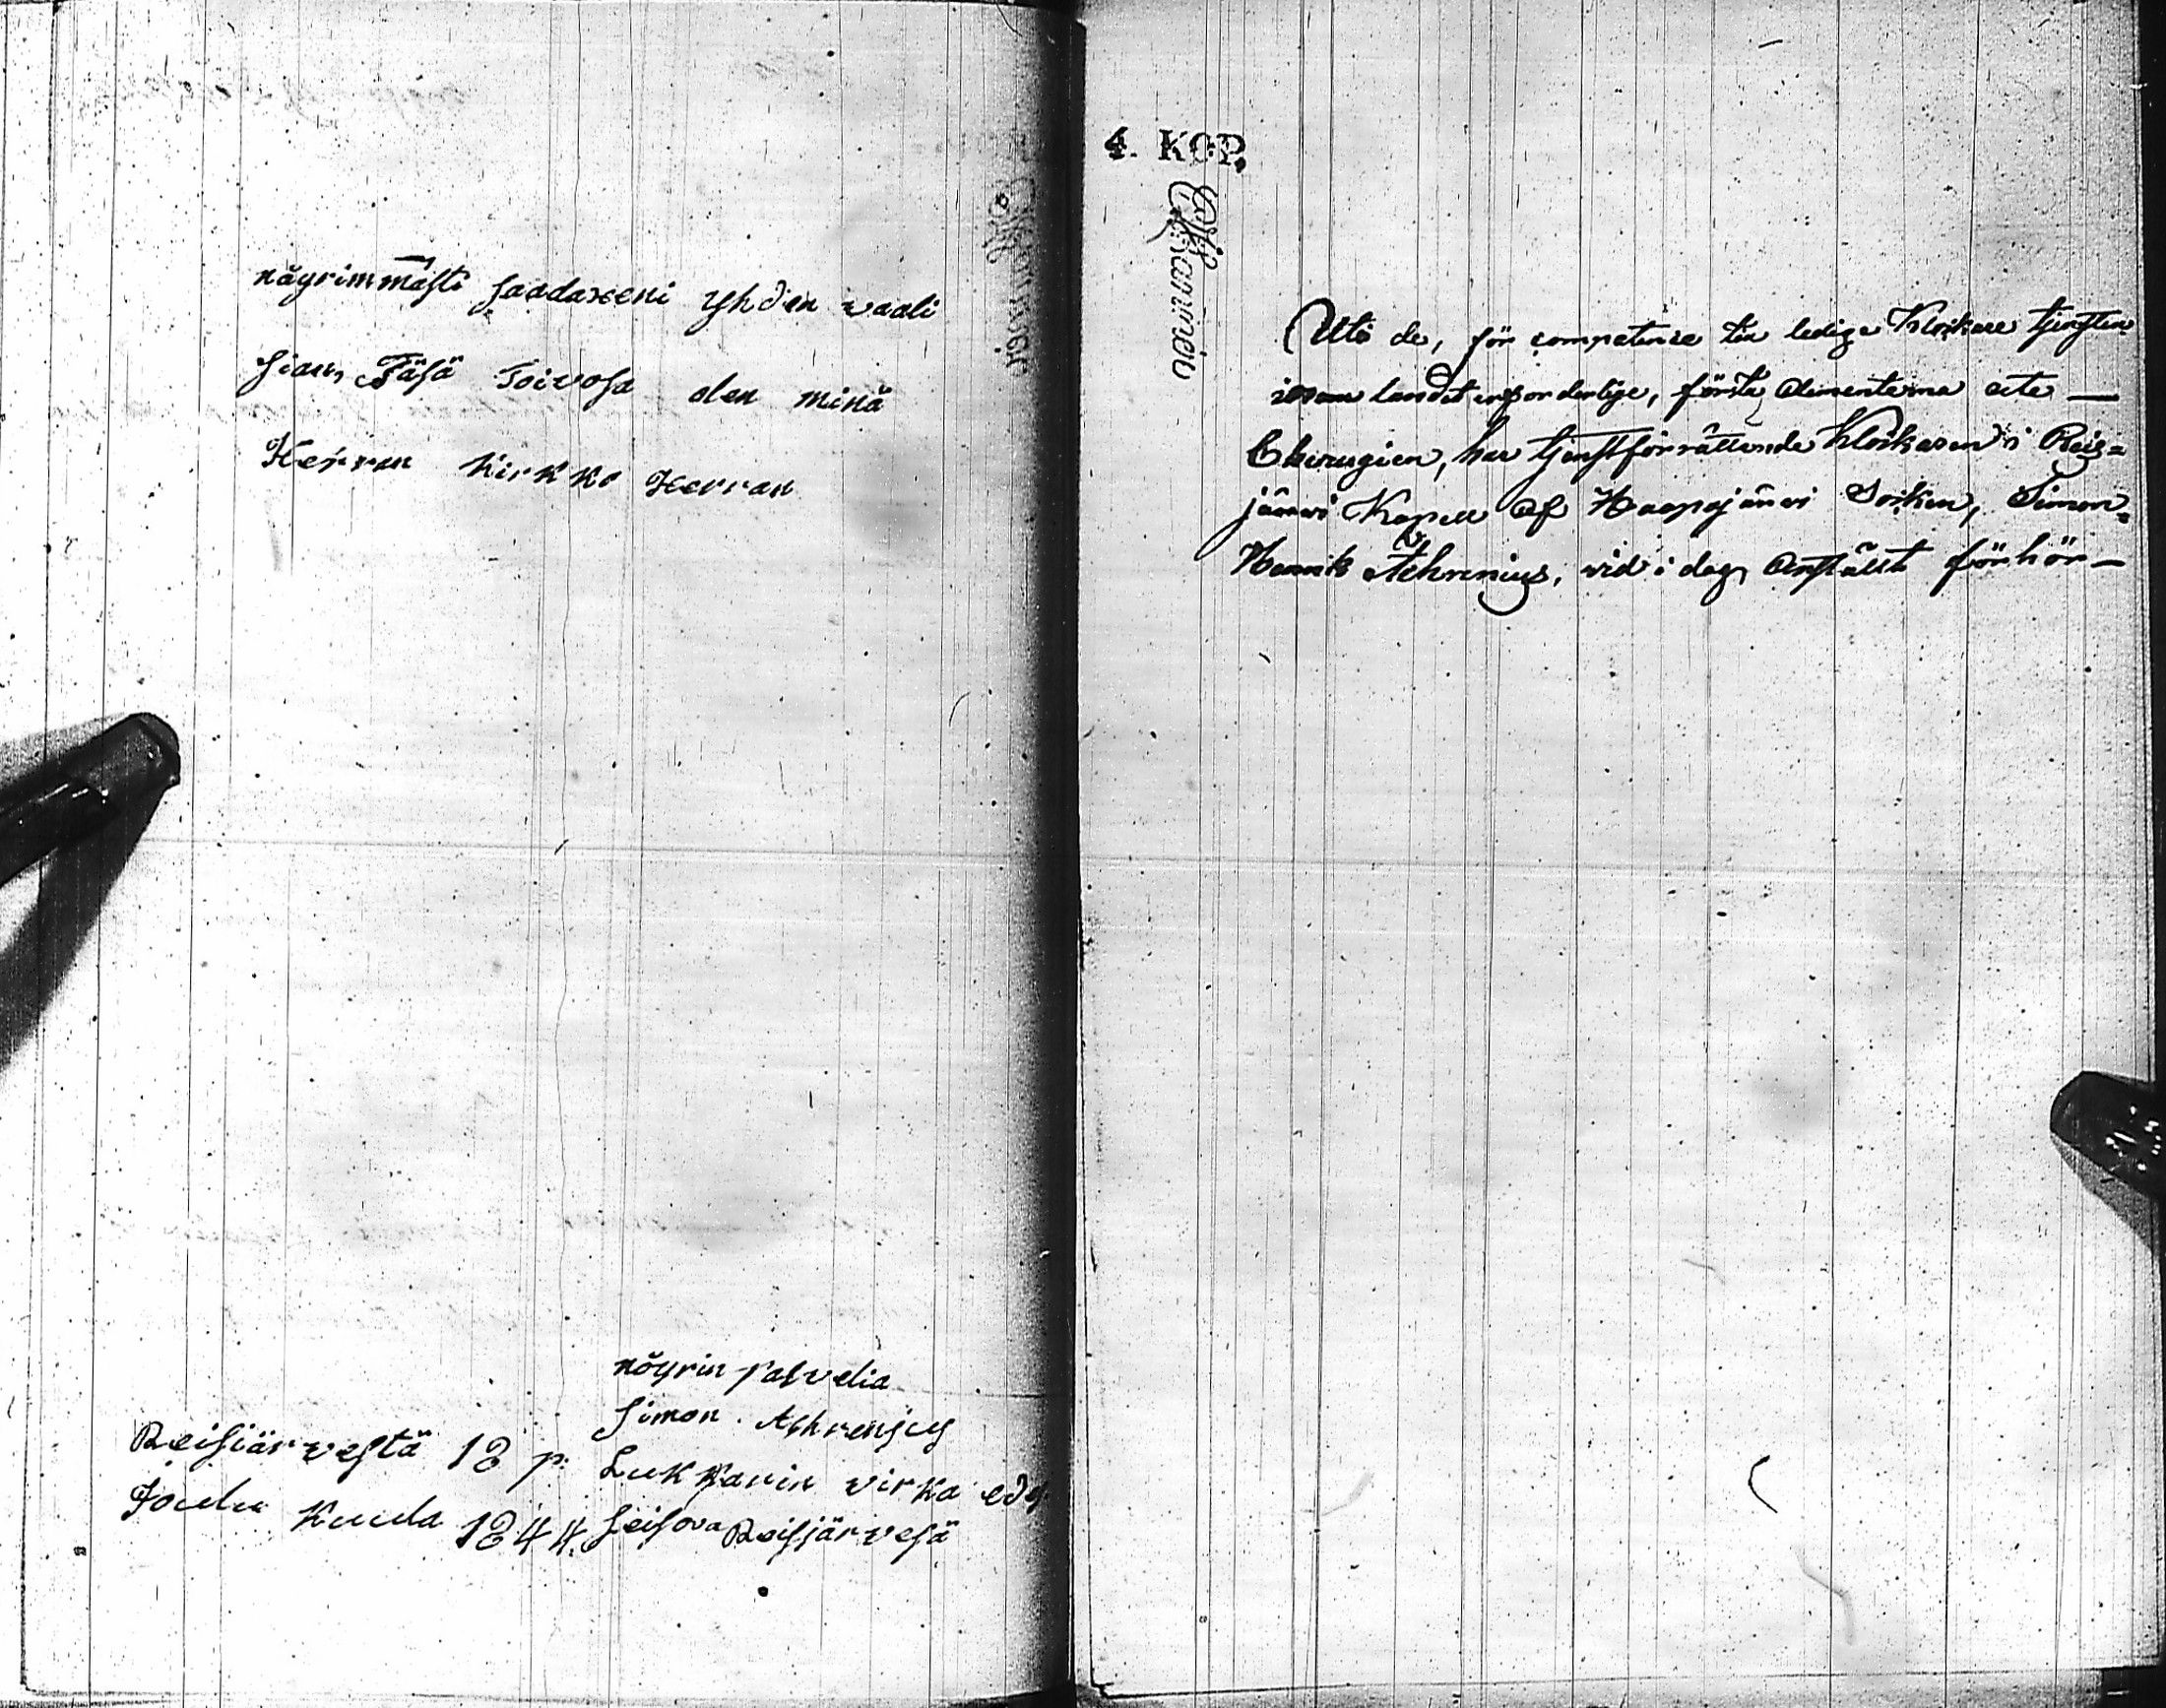 näyrimmästi saadaxeni yhden waali
sian, Täsä Toivosa olen minä
Herran Kirkko Herran
nöyrin palvelia
Simon. Achrenius
Reisiärvestä 18 p: Lukkarin virka edes
Joulu Kuula 1844. seisova Reisjärvesä
4. KOP.
Uti de, för competence till lediga Klockare tjensten
i landet erforderlige, första Elementerna
Chirurgien, har tjenstförrättande Klockaren i Reis=
järvi Kapell af Haapajärvi Socken, Simon
Henrik Achrenius, vid i dag anstäldt förhör —